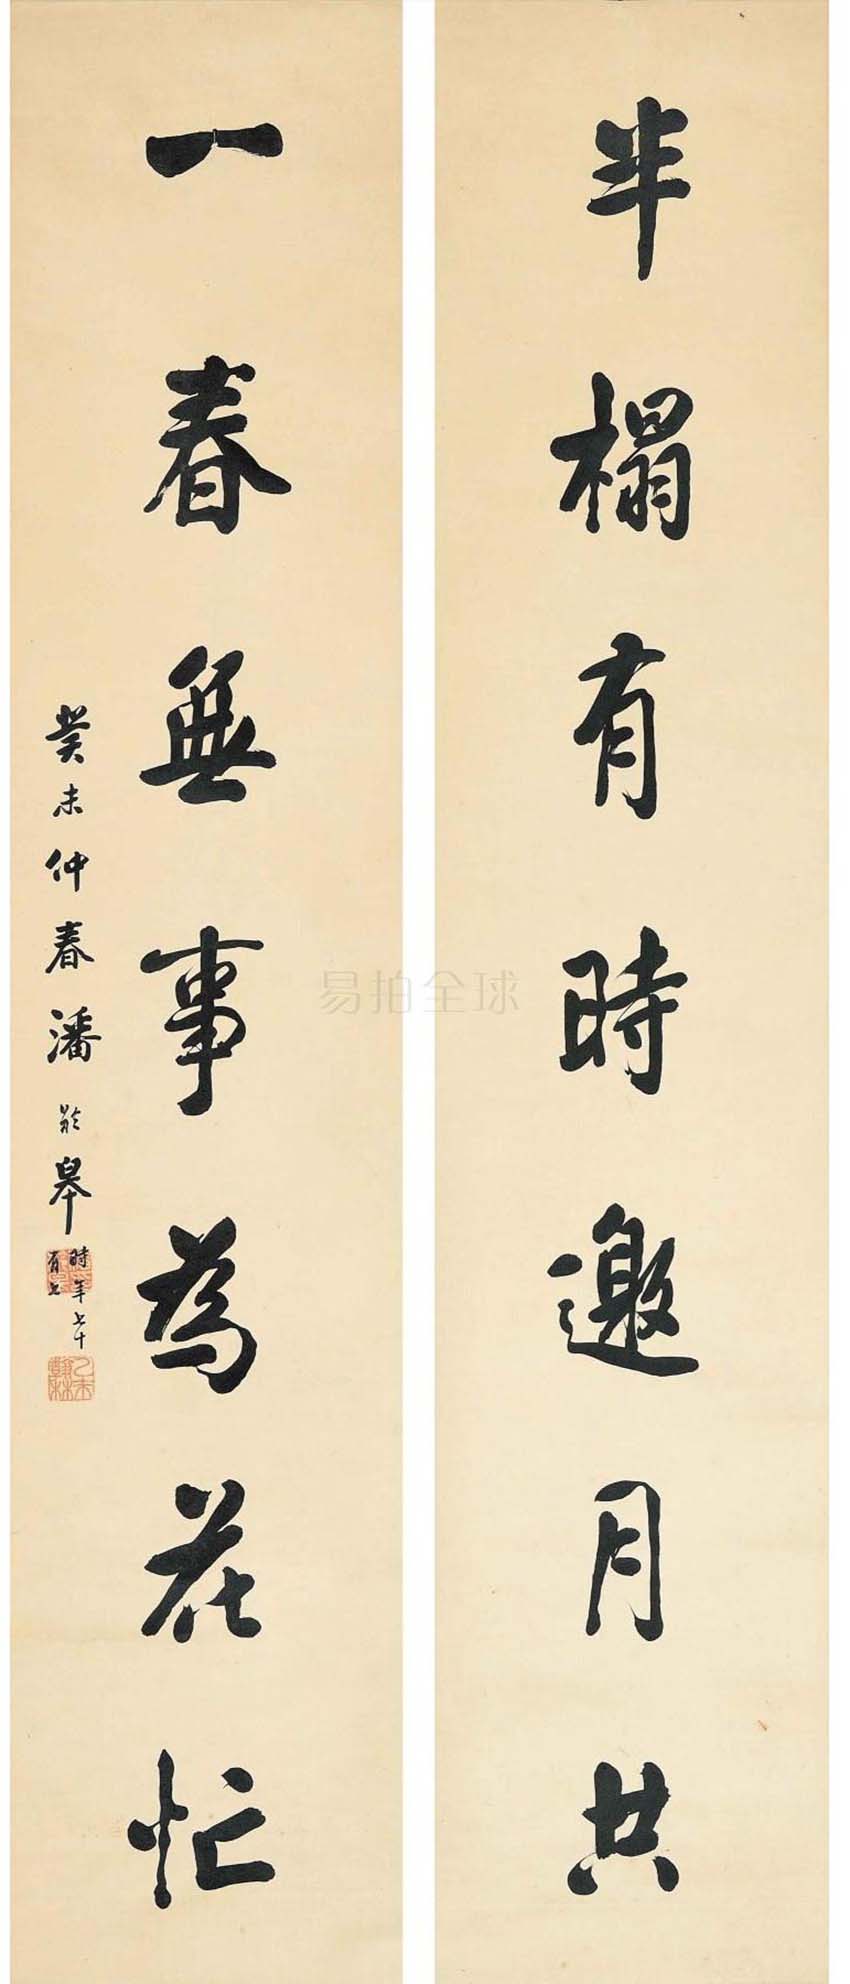 半榻有時邀月共
一春無事為花忙
癸未仲春潘齡皋
時年七十
有七
乙未翰林
易拍全球